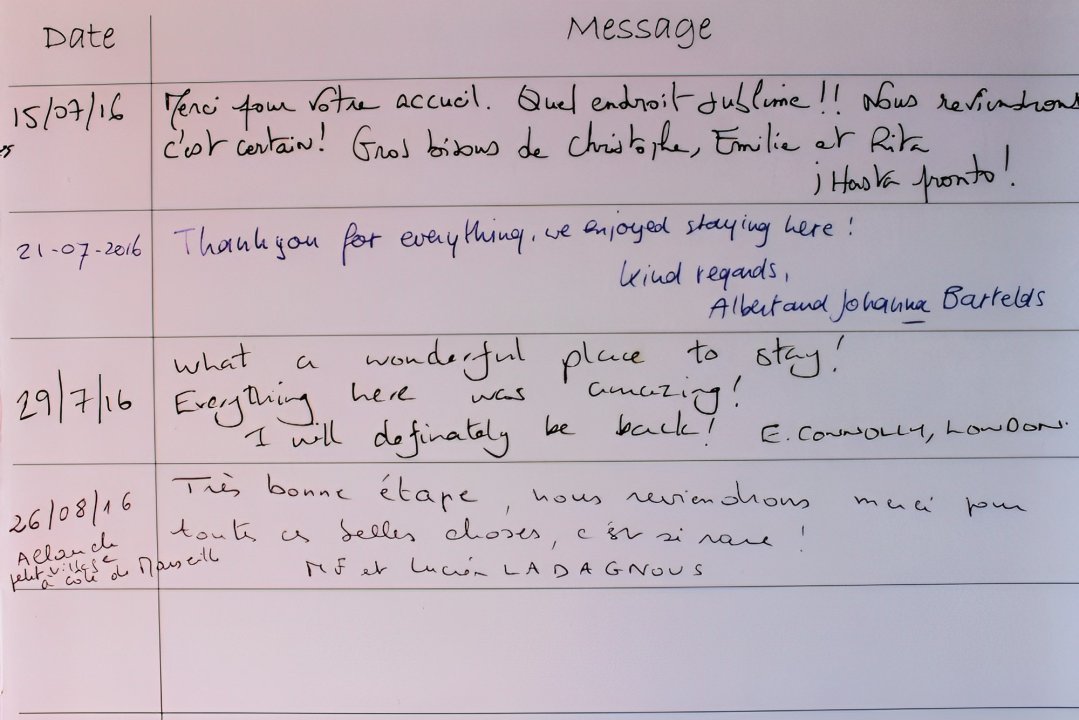 Date Message
15/07/16 Merci pour votre accueil. Quel endroit sublime !! Nous reviendrons
c'est certain! Gros bisous de Christophe, Emilie et Rita
¡Hasta pronto!
21-07-2016 Thank you for everything, we enjoyed staying here!
Kind regards,
Albert and Johanna Bartelds
29/7/16 What a wonderful place to stay!
Everything here was amazing!
I will definately be back! E. CONNOLLY, LONDON.
26/08/16 Très bonne étape, nous reviendrons merci pour
toutes ces belles choses, c'est si rare !
Allauch
petit village
à côté de Marseille
MF et Lucien LADAGNOUS